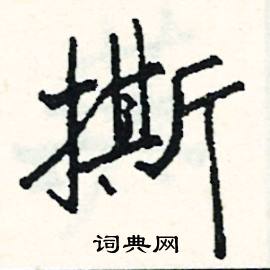 撕
词典网